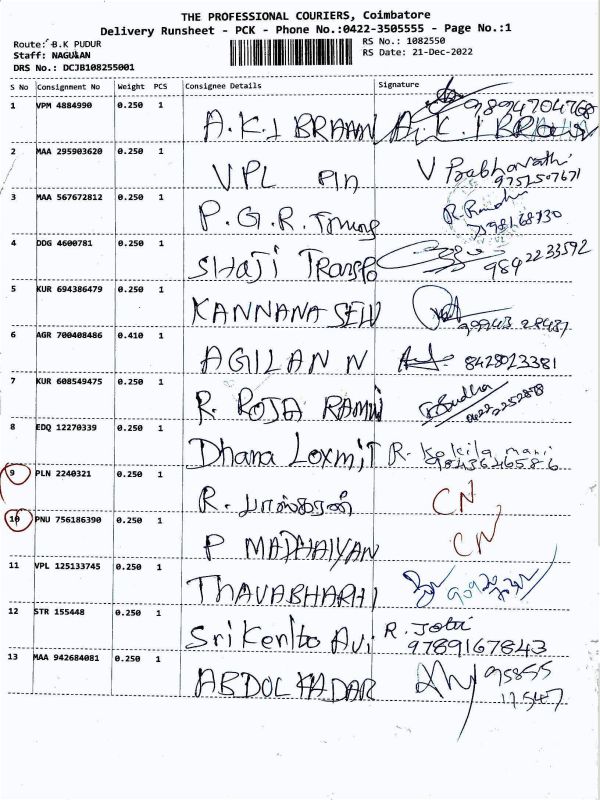 THE PROFESSIONAL COURIERS, Coimbatore
Delivery Runsheet - PCK - Phone No.:0422-3505555 - Page No.:1
Route: B.K PUDUR RS No.: 1082550
Staff: NAGULAN RS Date: 21-Dec-2022
DRS No.: DCJB108255001
S No Consignment No Weight PCS Consignee Details Signature
1 VPM 4884990 0.250 1 9894704768
A.K.I BRAAN A.K.I
2 MAA 295903620 0.250 1
VPL Pln V Prabhavathi
9751507671
3 MAA 567672812 0.250 1
P.G.R.
4 DDG 4600781 0.250 1
SHAJI TRANSPO 9842233592
5 KUR 694386479 0.250 1
KANNANA SELV
6 AGR 700408486 0.410 1
AGILAN N 8428023381
7 KUR 608549475 0.250 1
R. ROJA RAMNI
8 EDQ 12270339 0.250 1
Dhana Loxmi R. Kokila mani
9843646586
9 PLN 2240321 0.250 1
R. பாஸ்கரன் CN
10 PNU 756186390 0.250 1
P MADHAIYAN CN
11 VPL 125133745 0.250 1
THAVABHARHI
12 STR 155448 0.250 1
Sri R. Jothi
9789167843
13 MAA 942684081 0.250 1
ABDOL KADAR 95855